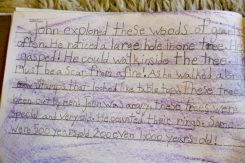 John explored these woods of giant
often. He noticed a large hole in one tree. He
gasped! He could walk inside the tree.
must be a scar from a fire. As he walked along
stumps that looked like table tops. These trees
been cut by men! John was angry. these trees were
special and very old. He counted the rings. Some
were 500 years old, 200 even 1,000 years old!